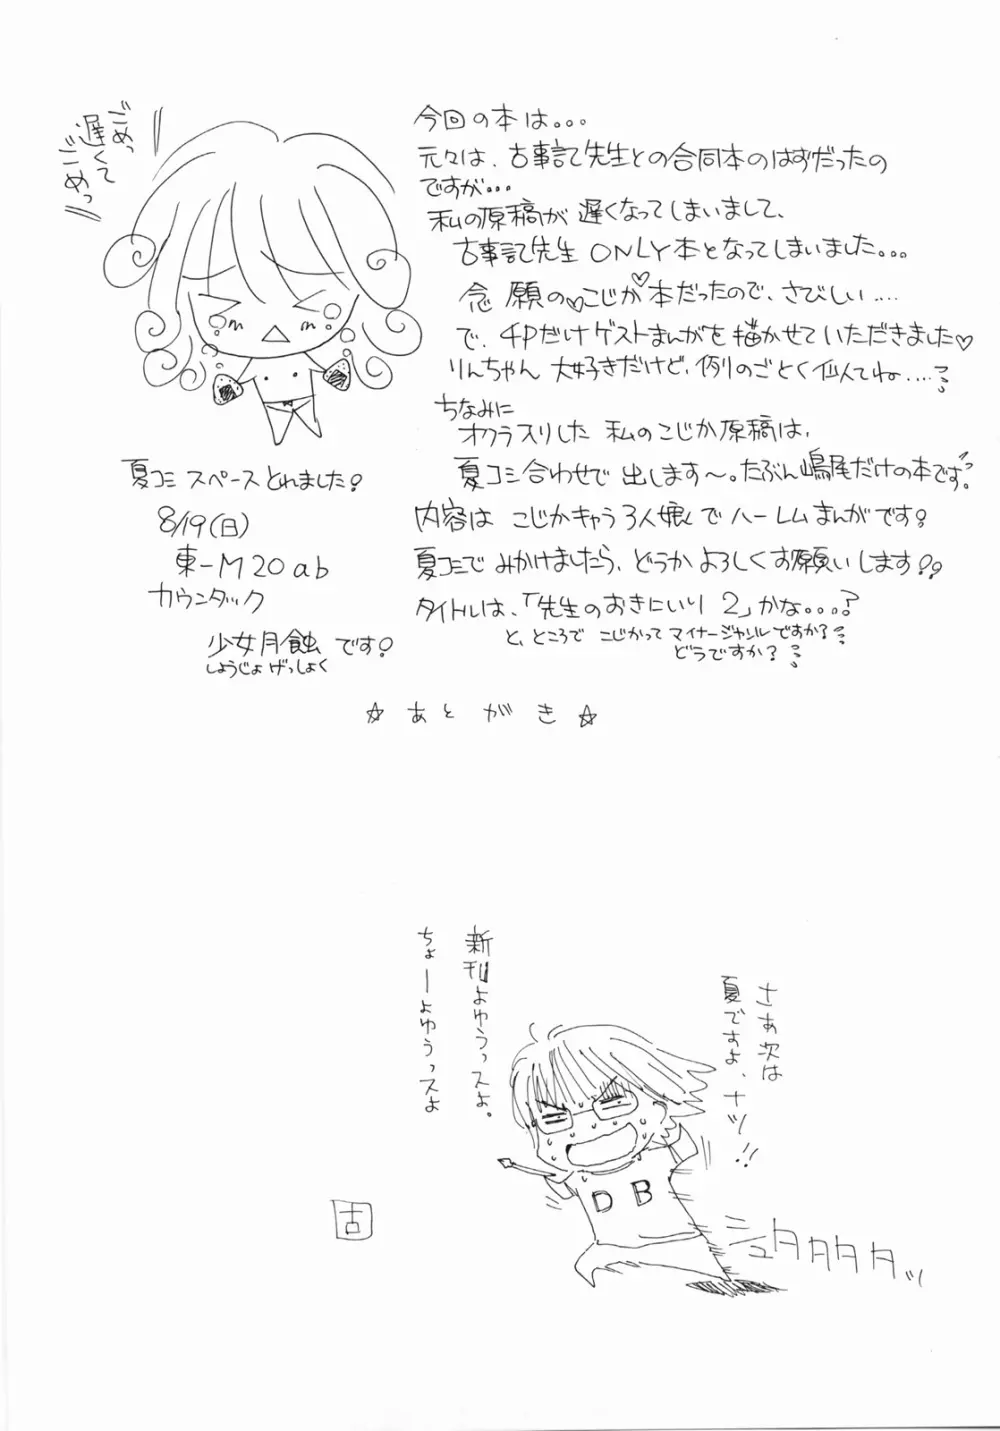 ごめっ
遅くて
ごめっ
今回の本は。。。
元々は、古事記先生との合同本のはずだったの
ですが・・・
私の原稿が遅くなってしまいまして、
古事記先生ONLY本となってしまいました。。。
念願の♡こじか♡本だったので、さびしい....
で、4Pだけゲストまんがを描かせていただきました♡
りんちゃん大好きだけど、例のごとく似てね....?
ちなみに
オクラスリした私のこじか原稿は、
夏コミ合わせで出します〜。たぶん嶋尾だけの本です。
内容はこじかキャラ3人娘でハーレムまんがです!
夏コミでみかけましたら、どうかよろしくお願いします!!
タイトルは、「先生のおきにいり2」かな。。。?
と、ところでこじかってマイナージャンルですか?
どうですか?
夏コミスペースとれました!
8/19(日)
東-M20ab
カウンタック
少女月蝕です!
しょうじょげっしょく
☆あとがき☆
さぁ次は
夏ですよ、ナツ!!
新刊よゆうっスよ。
ちょーよゆうっスよ
DB
シュタタタタッ
古